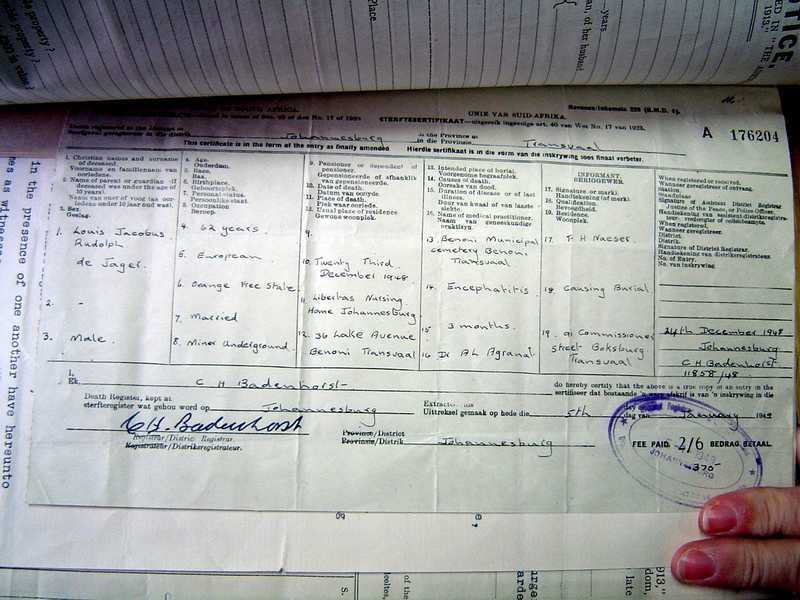 UNIE VAN SUID-AFRIKA.
STERFTESERTIFIKAAT—uitgereik ingevolge art. 40 van Wet No. 17 van 1923.
Johannesburg
in the Province of
in die Provinsie
Transvaal
A 176204
This certificate is in the form of the entry as finally amended
Hierdie sertifikaat is in die vorm van die inskrywing soos finaal verbeter.
1. Christian names and surname of deceased.
Voorname en familienaam van oorledene.
2. Name of parent or guardian if deceased was under the age of 10 years.
3. Sex.
Geslag.
4. Age.
Ouderdom.
5. Race.
Ras.
6. Birthplace.
Geboorteplek.
7. Personal status.
Persoonlike staat.
8. Occupation
Beroep.
9. Pensioner or dependent of pensioner.
Gepensioeneerde of afhanklik van gepensioeneerde.
10. Date of death.
Datum van oorlye.
11. Place of death.
Plek waar oorlede.
12. Usual place of residence
Gewone woonplek.
13. Intended place of burial.
Voorgenome begraafplek.
14. Causes of death.
Oorsake van dood.
15. Duration of disease or of last illness.
Duur van kwaal of van laaste siekte.
16. Name of medical practitioner.
Naam van geneeskundige praktisyn.
INFORMANT.
BERIGGEWER.
17. Signature or mark.
Handtekening (of merk)
18. Qualification.
Bevoegdheid.
19. Residence.
Woonplek.
When registered or received.
Wanneer geregistreer of ontvang.
Signature of Assistant District Registrar
Justice of the Peace, or Police Officer.
When registered.
Wanneer geregistreer.
District.
Distrik.
Signature of District Registrar.
Handtekening van distriksregistrateur.
No. of Entry.
No. van inskrywing
1. Louis Jacobus
Rudolph
de Jager.
2. -
3. Male
4. 62 years.
5. European
6. Orange Free State
7. Married
8. Miner Underground
9.
10. Twenty Third
December 1948
11. Libertas Nursing
Home Johannesburg
12. 36 Lake Avenue
Benoni Transvaal
13. Benoni Municipal
cemetery Benoni
Transvaal
14. Encephalitis
15. 3 months.
16. Dr A L Agranat
17. F H Naeser
18. Causing Burial
19. 91 Commissioner
street Boksburg
Transvaal
24th December 1948
Johannesburg
C H Badenhorst
11858/48
I,
Ek, C H Badenhorst
do hereby certify that the above is a true copy of an entry in the
Death Register, kept at
sterfteregister wat gehou word op Johannesburg
Uittreksel gemaak op hede die 5th
day of
dag van January 1949
C H Badenhorst
Registrar/District Registrar.
Registrateur/Distriksregistrateur.
Province/District
Provinsie/Distrik Johannesburg
FEE PAID 2/6 BEDRAG BETAAL
370
in the presence of one another have hereunto